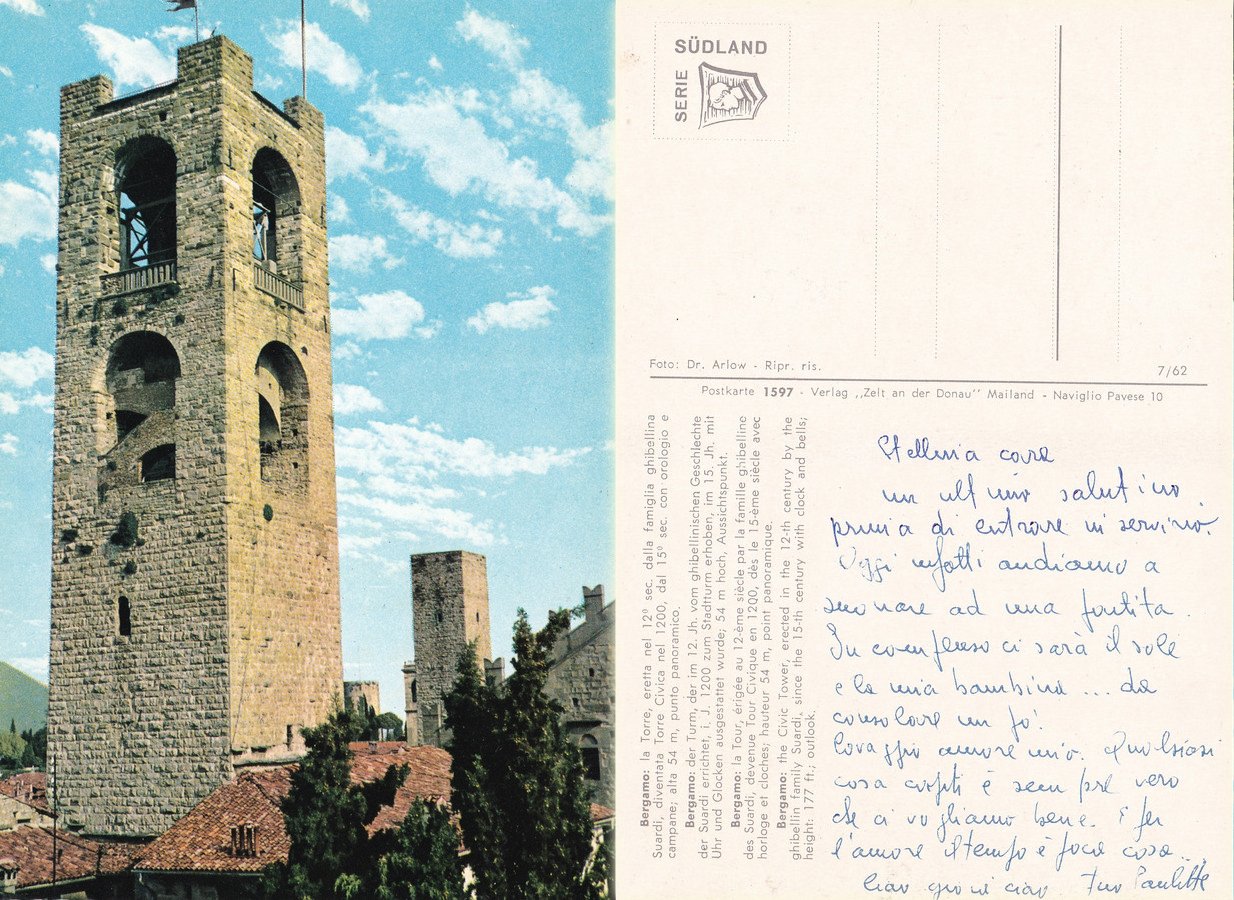 SERIE SÜDLAND
Foto: Dr. Arlow - Ripr. ris.
7/62
Postkarte 1597 - Verlag ,,Zelt an der Donau'' Mailand - Naviglio Pavese 10
Bergamo: la Torre, eretta nel 12º sec. dalla famiglia ghibellina
Suardi, diventata Torre Civica nel 1200, dal 15º sec. con orologio e
campane; alta 54 m, punto panoramico.
Bergamo: der Turm, der im 12. Jh. vom ghibellinischen Geschlechte
der Suardi errichtet, i. J. 1200 zum Stadtturm erhoben, im 15. Jh. mit
Uhr und Glocken ausgestattet wurde; 54 m hoch, Aussichtspunkt.
Bergamo: la Tour, érigée au 12-ème siècle par la famille ghibelline
des Suardi, devenue Tour Civique en 1200, dès le 15-ème siècle avec
horloge et cloches; hauteur 54 m, point panoramique.
Bergamo: the Civic Tower, erected in the 12-th century by the
ghibellin family Suardi, since the 15-th century with clock and bells;
height: 177 ft.; outlook.
Stellina cara
un ultimo salutino
prima di entrare in servizio.
Oggi infatti andiamo a
suonare ad una partita.
In compenso ci sarà il sole
e la mia bambina ... da
consolare un po'.
Coraggio amore mio. Qualsiasi
cosa capiti è sempre vero
che ci vogliamo bene. E per
l'amore il tempo è poca cosa...
Ciao ciao. Tuo